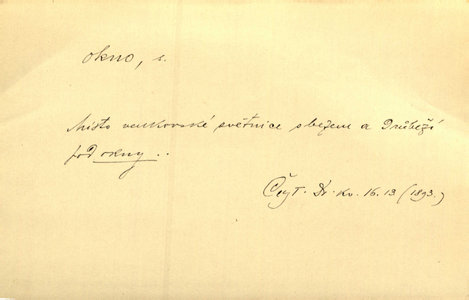 okno, s.
Místo venkovské světnice s bezem a Drůbeží
pod okny..
Čej T. Dr. kv. 16.13 (1893.)